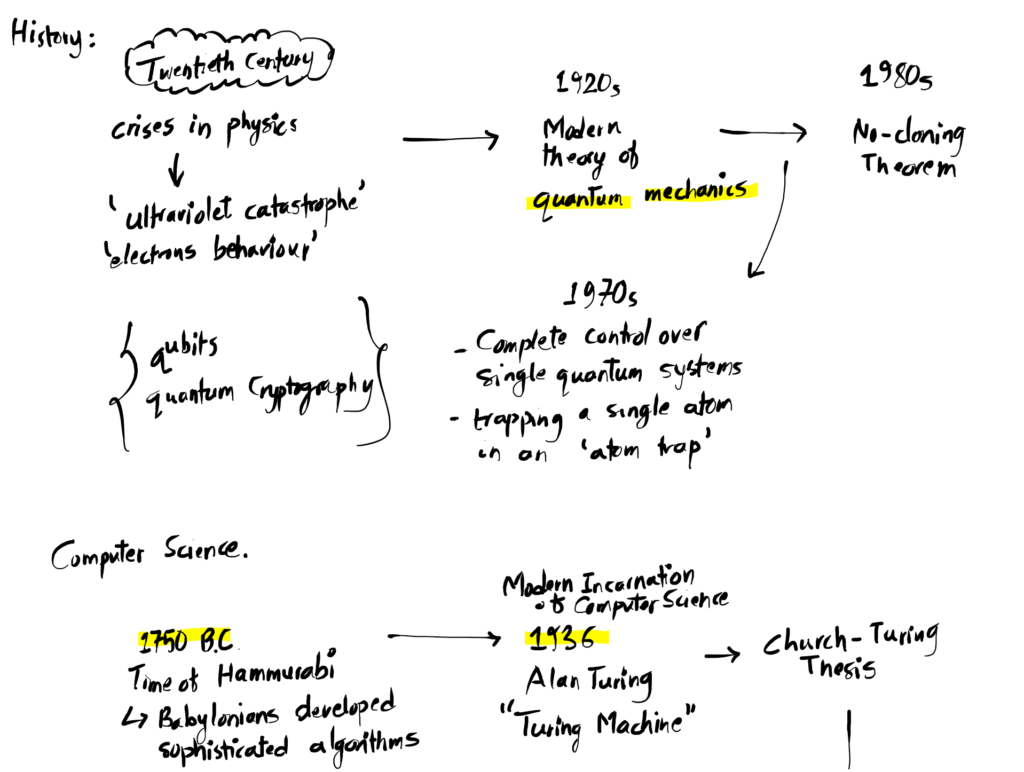 History:
Twentieth Century
crises in physics
'ultraviolet catastrophe'
'electrons behaviour'
1920s
Modern
theory of
quantum mechanics
1980s
No-cloning
Theorem
1970s
- Complete control over
single quantum systems
- trapping a single atom
in an 'atom trap'
qubits
quantum Cryptography
Computer Science.
1750 B.C.
Time of Hammurabi
↳ Babylonians developed
sophisticated algorithms
Modern Incarnation
of Computer Science
1936
Alan Turing
"Turing Machine"
Church-Turing
Thesis